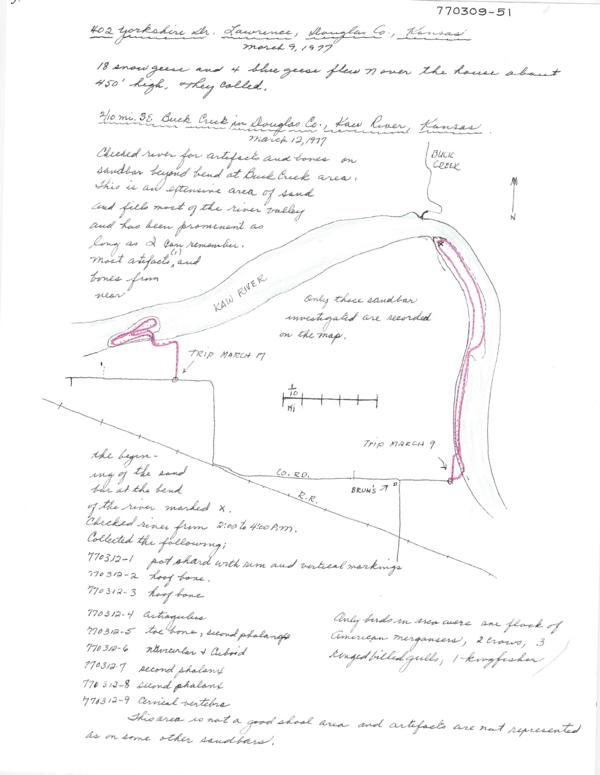 770309-51
402 Yorkshire Dr. Lawrence, Douglas Co., Kansas
March 9, 1977
18 snow geese and 4 blue geese flew N over the house about
450' high. They called.
2/10 mi. SE Buck Creek in Douglas Co., Kaw River, Kansas.
March 12, 1977
Checked river for artifacts and bones on
sandbar beyond bend at Buck Creek area.
This is an extensive area of sand
and fills most of the river valley
and has been prominent as
long as I can remember.
Most artifacts (1), and
bones from
near
BUCK
CREEK
N
KAW RIVER
Only those sandbar
investigated are recorded
on the map.
TRIP MARCH 17
1/10
Mi
TRIP MARCH 9
CO. RD.
R.R.
BRUN'S
the begin-
ing of the sand
bar at the bend
of the river marked x.
Checked river from 2:00 to 4:00 P.M.
Collected the following;
770312-1 pot shard with rim and vertical markings
770312-2 hoof bone.
770312-3 hoof bone
770312-4 astragulus
770312-5 toe bone, second phalanx
770312-6 navicular & cuboid
770312-7 second phalanx
770312-8 second phalanx
770312-9 cervical vertebra
Only birds in area were one flock of
American mergansers, 2 crows, 3
ringed billed gulls, 1-kingfisher
This area is not a good shoal area and artefacts are not represented
as on some other sandbars.